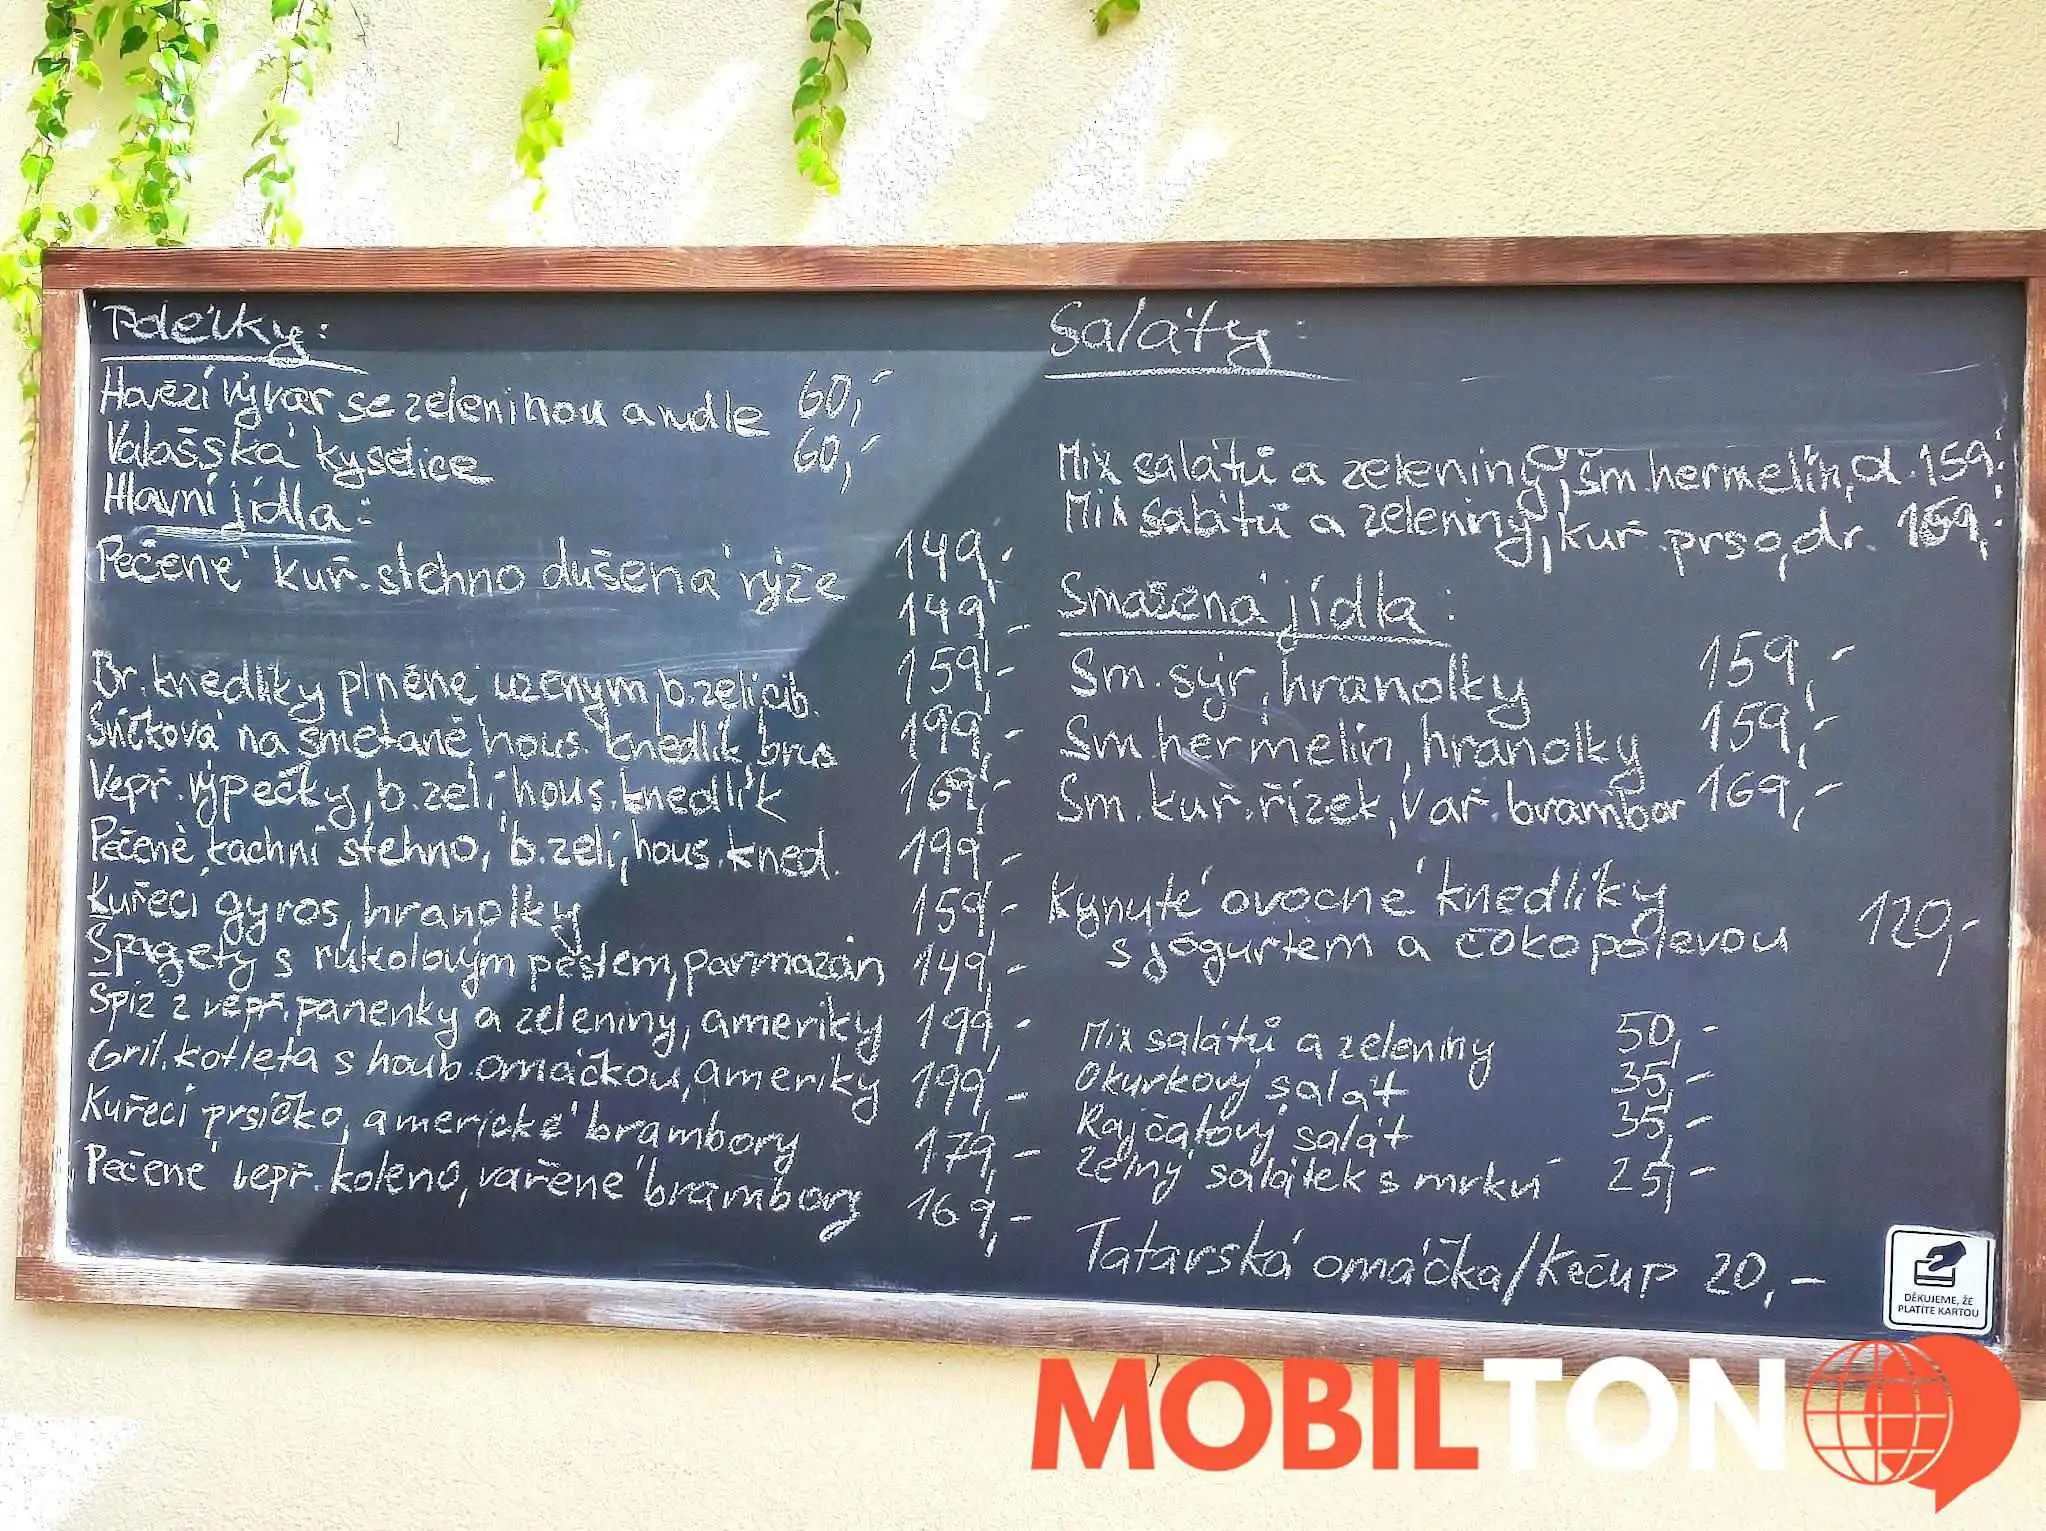 Polévky:
Hovězí vývar se zeleninou a nudle 60,-
Valašská kyselice 60,-
Hlavní jídla:
Pečené kuř. stehno dušená rýže 149,-
149,-
Br. knedlíky plněné uzeným, b. zelí, cib. 159,-
Svíčková na smetaně, hous. knedlík, brus 199,-
Vepř. výpečky, b. zelí, hous. knedlík 169,-
Pečené kachní stehno, b. zelí, hous. kned. 199,-
Kuřecí gyros, hranolky 159,-
Špagety s rukolovým pestem, parmazán 149,-
Špíz z vepř. panenky a zeleniny, ameriky 199,-
Gril. kotleta s houb. omáčkou, ameriky 199,-
Kuřecí prsíčko, americké brambory 179,-
Pečené vepř. koleno, vařené brambory 169,-
Saláty:
Mix salátů a zeleniny, sm. hermelín, d. 159,-
Mix salátů a zeleniny, kuř. prso, dr. 159,-
Smažená jídla:
Sm. sýr, hranolky 159,-
Sm. hermelín, hranolky 159,-
Sm. kuř. řízek, vař. brambor 169,-
Kynuté ovocné knedlíky
s jogurtem a čokopolevou 120,-
Mix salátů a zeleniny 50,-
Okurkový salát 35,-
Rajčatový salát 35,-
Zelný salátek s mrkví 25,-
Tatarská omáčka/Kečup 20,-
DĚKUJEME, ŽE
PLATÍTE KARTOU
MOBILTON